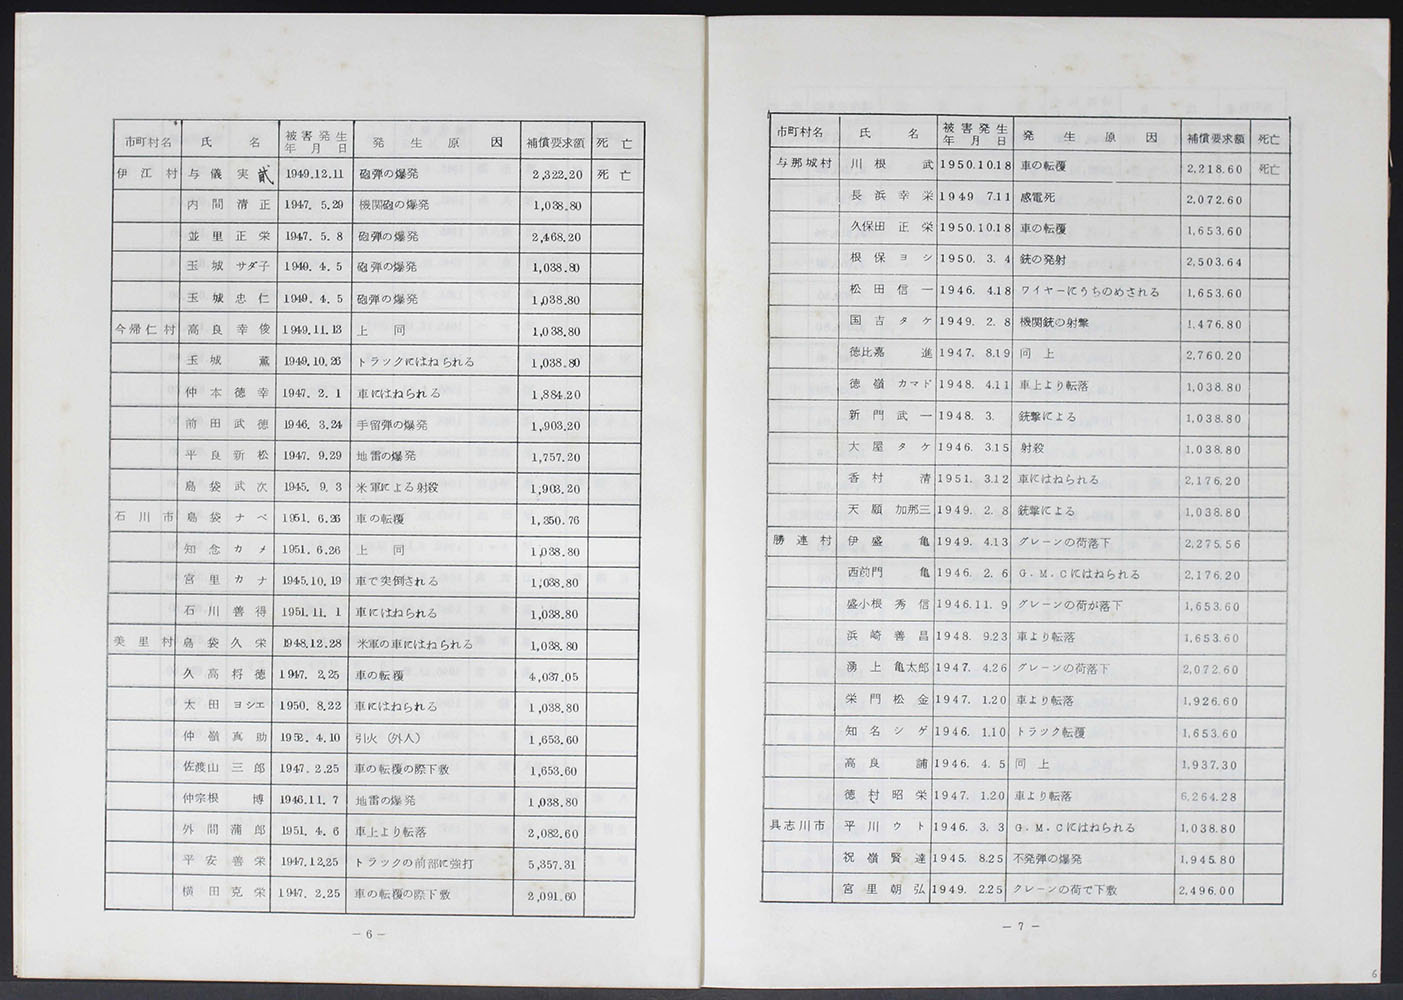 市町村名 氏名 被害発生年月日 発生原因 補償要求額 死亡
伊江村 与儀実貳 1949.12.11 砲弾の爆発 2,322.20 死亡
内間清正 1947.5.29 機関砲の爆発 1,038.80
並里正栄 1947.5.8 砲弾の爆発 2,468.20
玉城サダ子 1949.4.5 砲弾の爆発 1,038.80
玉城忠仁 1949.4.5 砲弾の爆発 1,038.80
今帰仁村 高良幸俊 1949.11.13 上同 1,038.80
玉城薫 1949.10.26 トラックにはねられる 1,038.80
仲本徳幸 1947.2.1 車にはねられる 1,884.20
前田武徳 1946.3.24 手留弾の爆発 1,903.20
平良新松 1947.9.29 地雷の爆発 1,757.20
島袋武次 1945.9.3 米軍による射殺 1,903.20
石川市 島袋ナベ 1951.6.26 車の転覆 1,350.76
知念カメ 1951.6.26 上同 1,038.80
宮里カナ 1945.10.19 車で突倒される 1,038.80
石川善得 1951.11.1 車にはねられる 1,038.80
美里村 島袋久栄 1948.12.28 米軍の車にはねられる 1,038.80
久高将徳 1947.2.25 車の転覆 4,037.05
太田ヨシエ 1950.8.22 車にはねられる 1,038.80
仲嶺真助 1952.4.10 引火(外人) 1,653.60
佐渡山三郎 1947.2.25 車の転覆の際下敷 1,653.60
仲宗根博 1946.11.7 地雷の爆発 1,038.80
外間蒲郎 1951.4.6 車上より転落 2,082.60
平安善栄 1947.12.25 トラックの前部に強打 5,357.31
横田克栄 1947.2.25 車の転覆の際下敷 2,091.60
－6－
市町村名 氏名 被害発生年月日 発生原因 補償要求額 死亡
与那城村 川根武 1950.10.18 車の転覆 2,218.60 死亡
長浜幸栄 1949 7.11 感電死 2,072.60
久保田正栄 1950.10.18 車の転覆 1,653.60
根保ヨシ 1950.3.4 銃の発射 2,503.64
松田信一 1946.4.18 ワイヤーにうちのめされる 1,653.60
国吉タケ 1949.2.8 機関銃の射撃 1,476.80
徳比嘉進 1947.8.19 同上 2,760.20
徳嶺カマド 1948.4.11 車上より転落 1,038.80
新門武一 1948.3. 銃撃による 1,038.80
大屋タケ 1946.3.15 射殺 1,038.80
香村清 1951.3.12 車にはねられる 2,176.20
天願加那三 1949.2.8 銃撃による 1,038.80
勝連村 伊盛亀 1949.4.13 グレーンの荷落下 2,275.56
西前門亀 1946.2.6 G.M.Cにはねられる 2,176.20
盛小根秀信 1946.11.9 グレーンの荷が落下 1,653.60
浜崎善昌 1948.9.23 車より転落 1,653.60
湧上亀太郎 1947.4.26 グレーンの荷落下 2,072.60
栄門松金 1947.1.20 車より転落 1,926.60
知名シゲ 1946.1.10 トラック転覆 1,653.60
高良誧 1946.4.5 同上 1,937.30
徳村昭栄 1947.1.20 車より転落 6,264.28
具志川市 平川ウト 1946.3.3 G.M.Cにはねられる 1,038.80
祝嶺賢達 1945.8.25 不発弾の爆発 1,945.80
宮里朝弘 1949.2.25 クレーンの荷で下敷 2,496.00
－7－
6